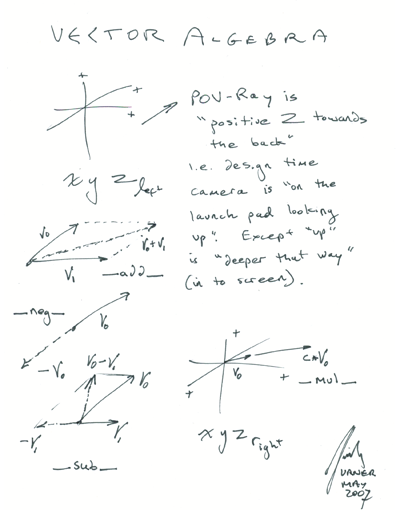 VECTOR ALGEBRA
+
+
+
POV-Ray is
"positive Z towards
the back"
i.e. design time
camera is "on the
launch pad looking
up". Except "up"
is "deeper that way"
(in to screen).
x y z left
V0
V0+V1
V1
__add__
__neg__
V0
-V0
V0-V1
V0
-V1
V1
__sub__
+
+
+
V0
C*V0
__mul__
x y z right
URNER
MAY
2007